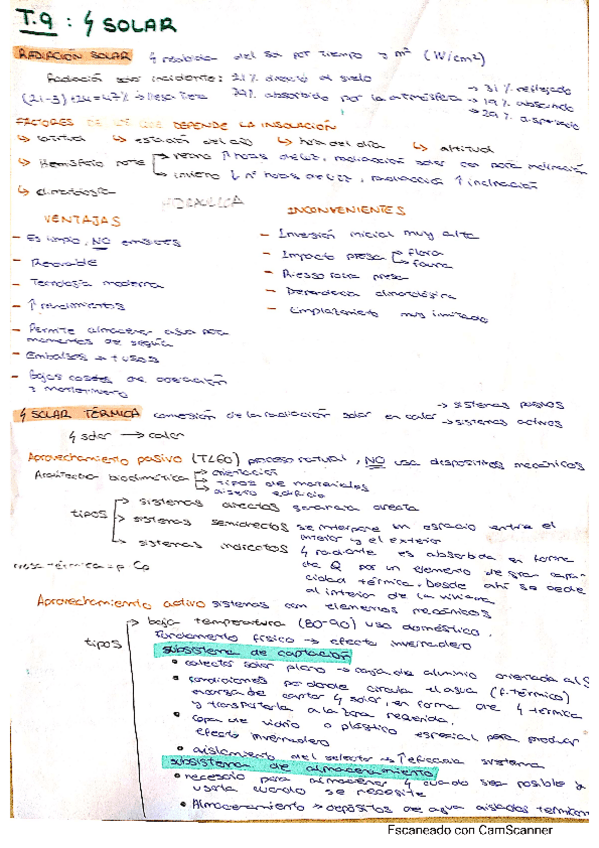 T.9 : ϟ SOLAR
RADIACIÓN SOLAR ϟ recibida del Sol por tiempo y m² (W/cm²)
Radiación solar incidente: 21% directo al suelo → 31% reflejado
(21-3)+24=47% → llega tierra 29% absorbido por la atmósfera → 19% absorbido
→ 29% dispersado
FACTORES DE LOS QUE DEPENDE LA INSOLACIÓN
↳ latitud ↳ estación del año ↳ hora del día ↳ altitud
↳ Hemisferio norte → verano ↑ horas de luz, radiación solar con poca inclinación
→ invierno ↓ nº horas de luz, radiación ↑ inclinación
↳ climatología
HIDRÁULICA
VENTAJAS
- Es limpio, NO emisiones
- Renovable
- Tecnología moderna
- ↑ rendimientos
- Permite almacenar agua para
momentos de sequía
- Embalses → + usos
- Bajos costes de operación
y mantenimiento
INCONVENIENTES
- Inversión inicial muy alta
- Impacto presa → flora
→ fauna
- Riesgo rotura presa
- Dependencia climatológica
- Emplazamiento muy limitado
ϟ SOLAR TÉRMICA conversión de la radiación solar en calor → sistemas pasivos
→ sistemas activos
ϟ solar → calor
Aprovechamiento pasivo (TL60) proceso natural, NO usa dispositivos mecánicos
Arquitectura bioclimática → orientación
→ tipos de materiales
→ diseño edificio
tipos → sistemas directos ganancia directa
→ sistemas semidirectos se interpone un espacio entre el
interior y el exterior
→ sistemas indirectos ϟ radiante es absorbida en forma
de Q por un elemento de gran capa-
cidad térmica. Desde ahí se cede
al interior de la vivienda
masa térmica = ρ Cp
Aprovechamiento activo sistemas con elementos mecánicos
tipos → baja temperatura (80-90) uso doméstico.
Fundamento físico → efecto invernadero
subsistema de captación
• colector solar plano → caja de aluminio orientada al S
• conducciones por donde circula el agua (f. térmico)
encargada de captar ϟ solar, en forma de ϟ térmica
y transportarla a la zona requerida.
• capa de vidrio o plástico especial para producir
efecto invernadero
• aislamiento del selector → ↑ eficacia sistema
subsistema de almacenamiento
• necesario para almacenar ϟ cuando sea posible y
usarla cuando se necesite
• Almacenamiento → depósitos de agua aislados térmicam
Escaneado con CamScanner